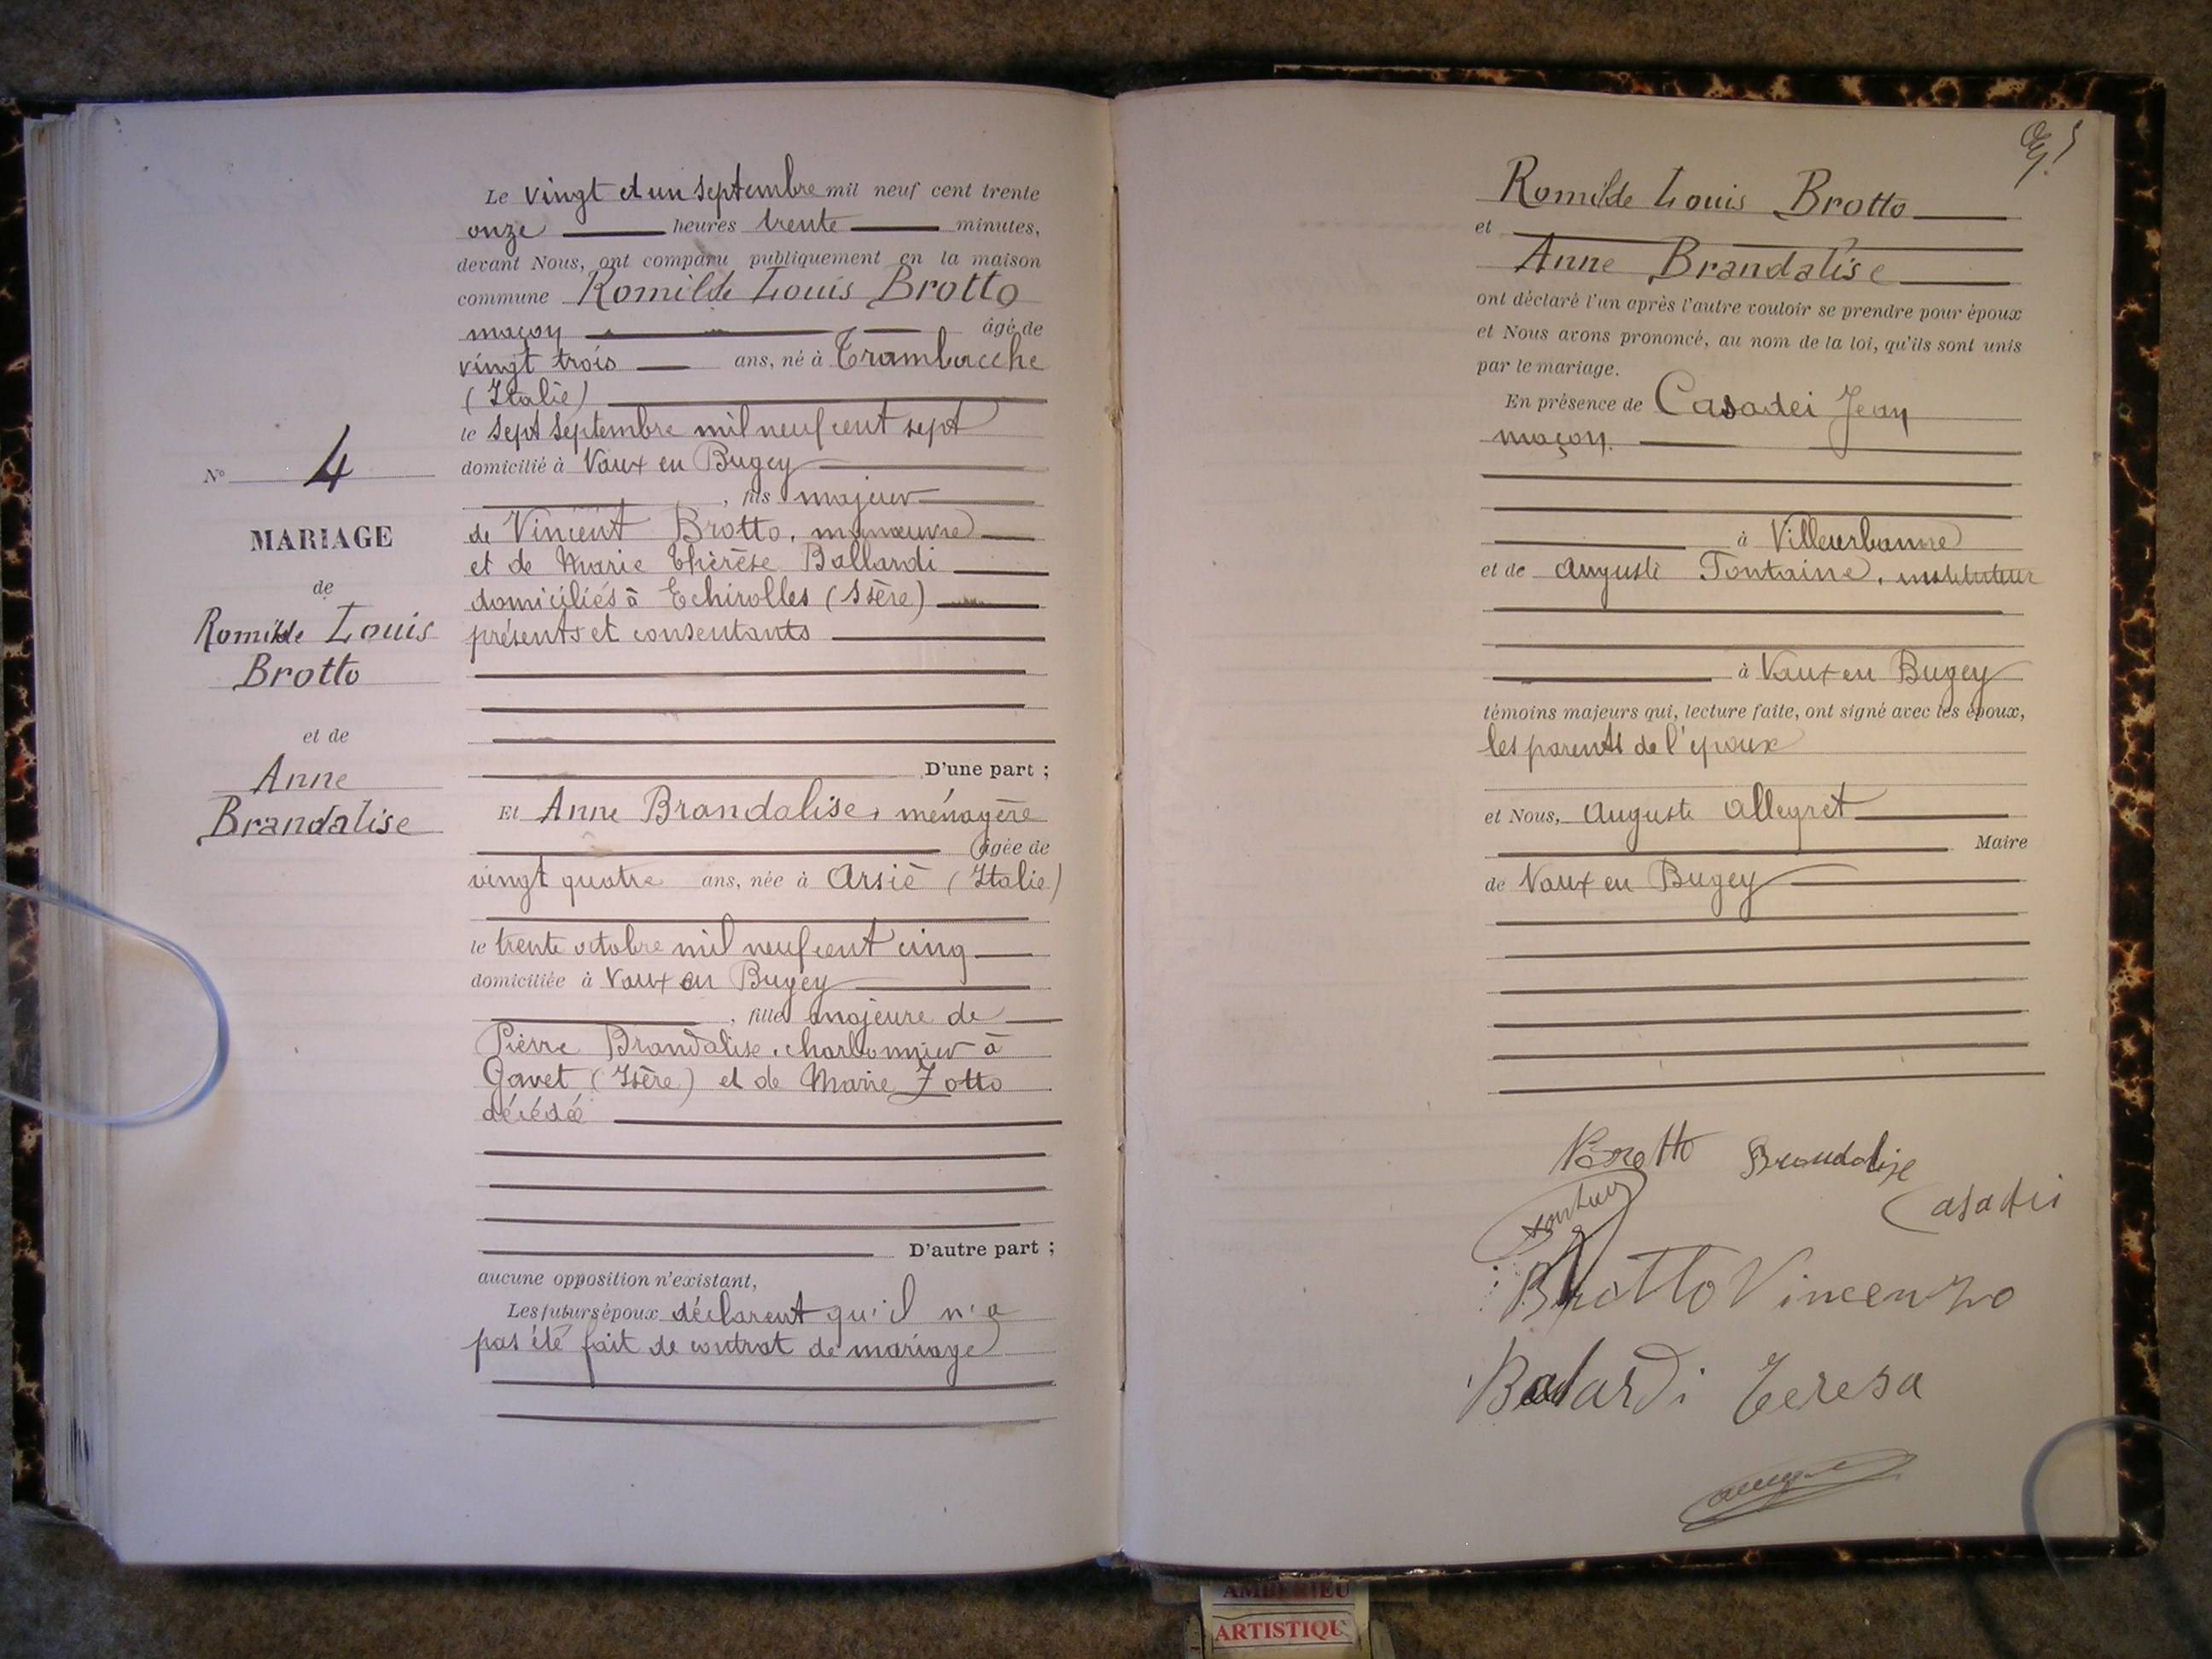 Le vingt et un septembre mil neuf cent trente
onze heures trente minutes,
devant Nous, ont comparu publiquement en la maison
commune Romilde Louis Brotto
maçon âgé de
vingt trois ans, né à Trambacche
(Italie)
le sept septembre mil neuf cent sept
domicilié à Vaux en Bugey
, fils majeur
de Vincent Brotto, manœuvre
et de Marie Thérèse Ballardi
domiciliés à Echirolles (Isère)
présents et consentants
D'une part ;
Et Anne Brandalise, ménagère
âgée de
vingt quatre ans, née à Arsiè (Italie)
le trente octobre mil neuf cent cinq
domiciliée à Vaux en Bugey
, fille majeure de
Pierre Brandalise, charbonnier à
Gavet (Isère) et de Marie Zotto
décédée
D'autre part ;
aucune opposition n'existant,
Les futurs époux déclarent qu'il n'a
pas été fait de contrat de mariage
N° 4
MARIAGE
de
Romilde Louis
Brotto
et de
Anne
Brandalise
Romilde Louis Brotto
et
Anne Brandalise
ont déclaré l'un après l'autre vouloir se prendre pour époux
et Nous avons prononcé, au nom de la loi, qu'ils sont unis
par le mariage.
En présence de Casadei Jean
maçon.
à Villeurbanne
et de Auguste Fontaine, instituteur
à Vaux en Bugey
témoins majeurs qui, lecture faite, ont signé avec les époux,
les parents de l'époux
et Nous, Auguste Alleyret
Maire
de Vaux en Bugey
Brotto Brandalise
Casadei
Brotto Vincenzo
Balardi Teresa
AMBERIEU
ARTISTIQU